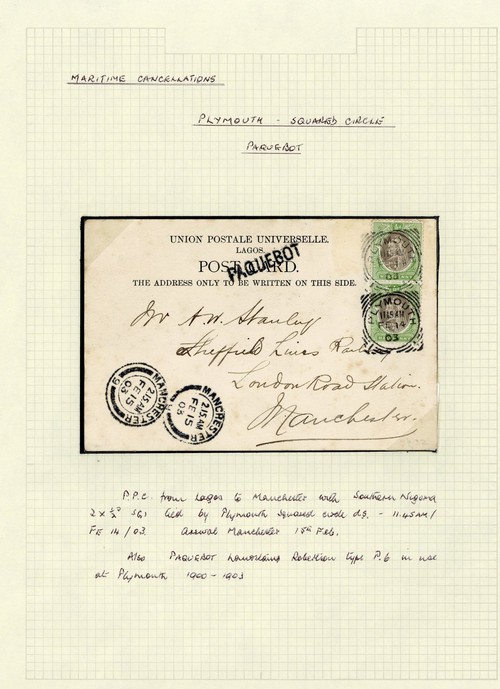 MARITIME CANCELLATIONS
PLYMOUTH - SQUARED CIRCLE
PAQUEBOT
UNION POSTALE UNIVERSELLE.
LAGOS.
POST CARD.
PAQUEBOT
THE ADDRESS ONLY TO BE WRITTEN ON THIS SIDE.
PLYMOUTH
03
PLYMOUTH
11 45 AM
FE 14
03
Mr A. W. Stanley
Sheffield Lines Railway
London Road Station.
Manchester.
MANCHESTER
2 15 AM
FE 15
03
9
MANCHESTER
2 15 AM
FE 15
03
P.P.C. from Lagos to Manchester with Southern Nigeria
2 x ½D SG1 tied by Plymouth squared circle d.s. - 11.45AM/
FE 14/03. Arrival Manchester 15th Feb.
Also PAQUEBOT handstamp Robertson type P.6 in use
at Plymouth 1900-1903